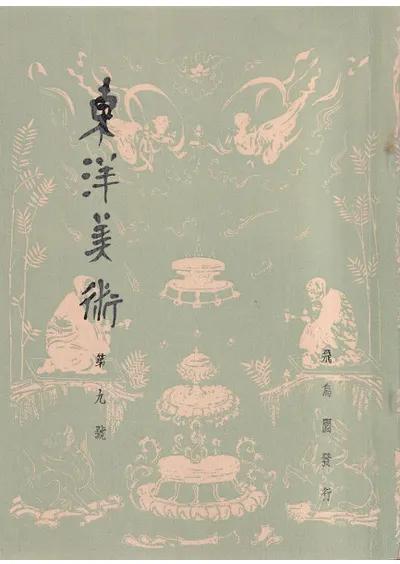 東洋美術
第九號
飛鳥園發行